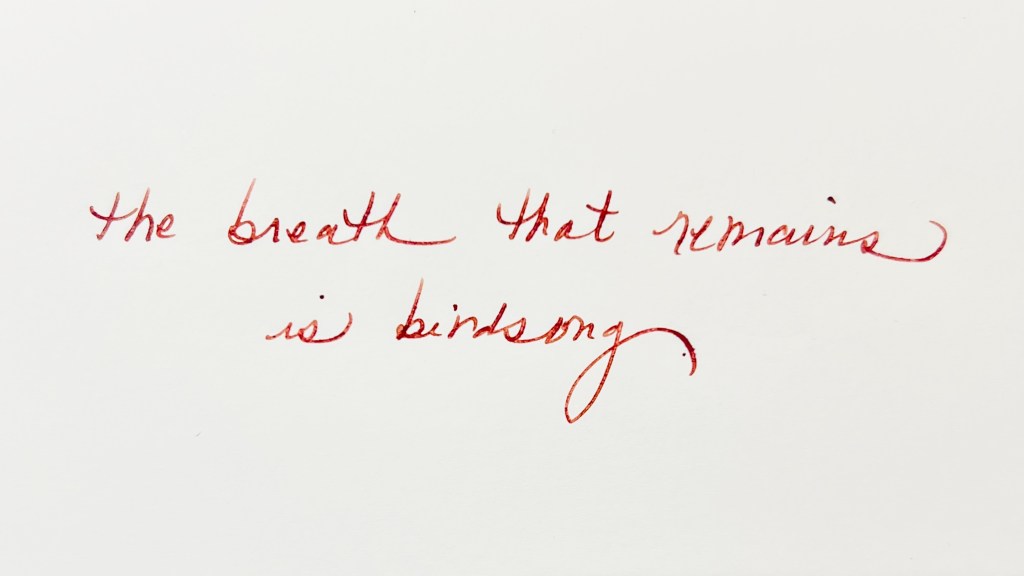 the breath that remains
is birdsong.